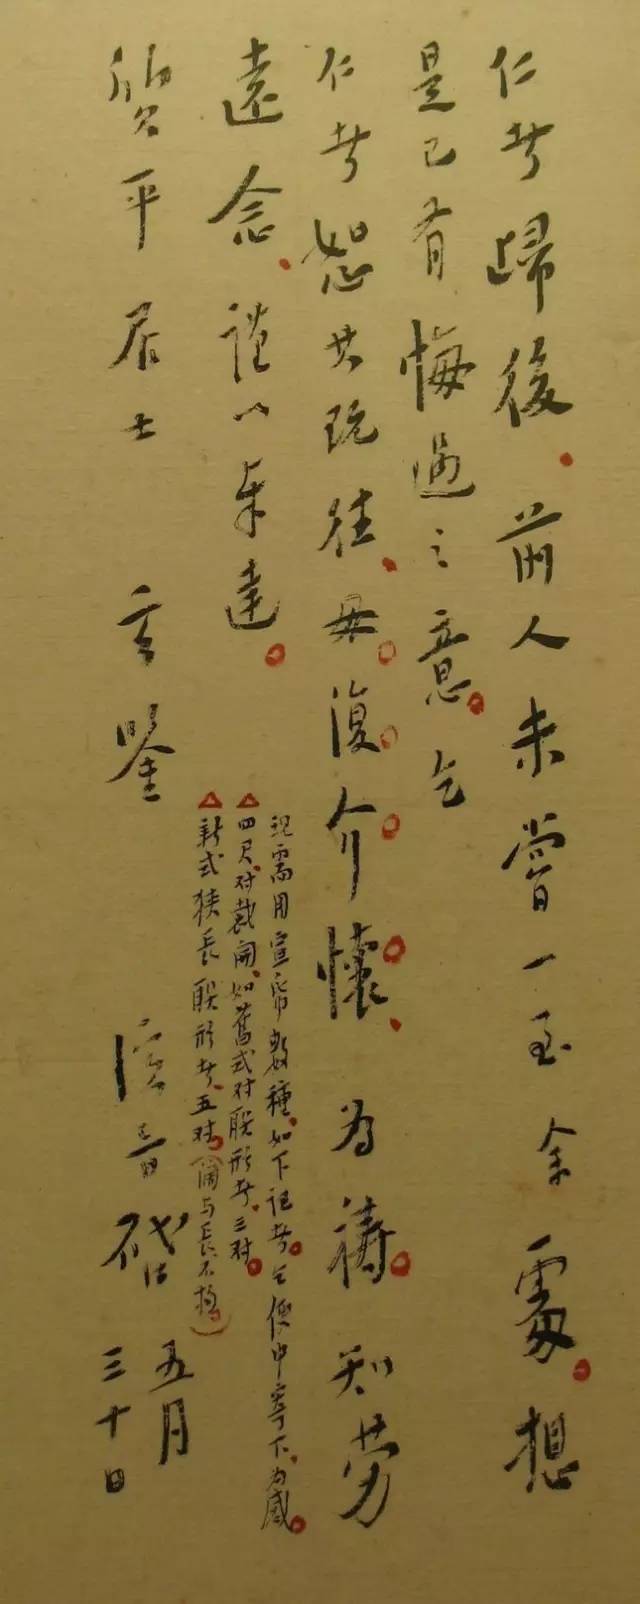 仁者歸後、前人未嘗一至余處。想
是已有悔過之意。乞
仁者恕其既往、毋復介懷、為禱。知勞
遠念、謹以奉達。
質平居士 玄鑒
演音啟 五月
三十日
現需用宣帋數種、如下記者。乞便中寄下、为感。
△四尺对裁開、如舊式对聯形者、三对。
△新式狹長聯形者、五对。(闊与長不拘)